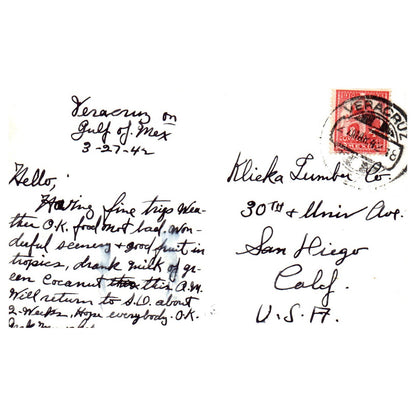 Veracruz on
Gulf of Mex
3-27-42
Hello,
Having fine trip, Wea-
ther O.K. food not bad. Won-
duful scenery & good fruit in
tropics, drank milk of gr-
een Cocanut this A.M.
Will return to S.D. about
2-Weeks, Hope everybody O.K.
VERACRUZ
Klicka Lumber Co.
30TH & Univ Ave.
San Diego
Calif.
U.S.A.